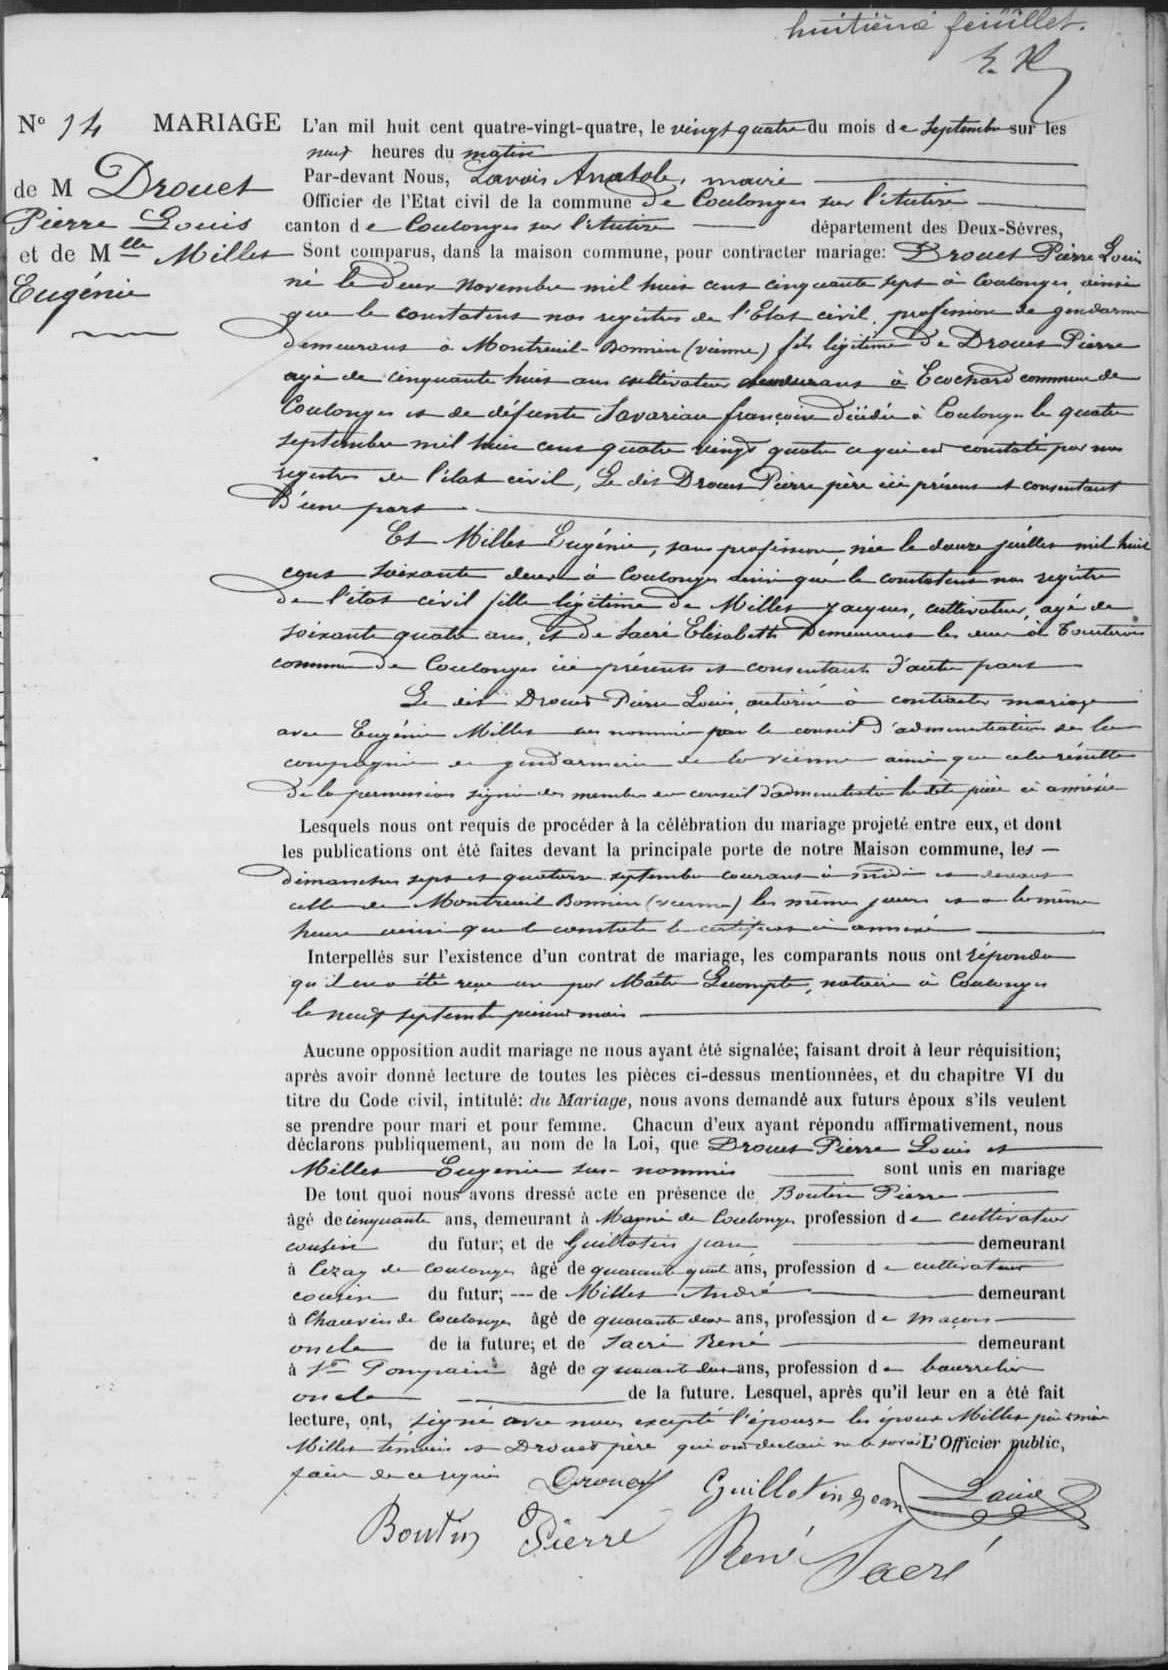 huitième feuillet.
N° 14 MARIAGE
de M Drouet
Pierre Louis
et de Mlle Millet
Eugénie
L'an mil huit cent quatre-vingt-quatre, le vingt quatre du mois de septembre sur les
neuf heures du matin
Par-devant Nous, Lavois Anatole, maire
Officier de l'Etat civil de la commune de Coulonges sur l'Autize
canton de Coulonges sur l'Autize département des Deux-Sèvres,
Sont comparus, dans la maison commune, pour contracter mariage: Drouet Pierre Louis
né le deux novembre mil huit cent cinquante sept à Coulonges, ainsi
que le constatent nos registres de l'Etat civil, profession de gendarme
demeurant à Montreuil-Bonnin (vienne) fils légitime de Drouet Pierre
agé de cinquante huit ans cultivateur demeurant à Ecochard commune de
Coulonges et de défunte Savariau françoise décédée à Coulonges le quatre
septembre mil huit cent quatre vingt quatre ce qui est constaté par nos
registres de l'état civil, Le dit Drouet Pierre père ici présent et consentant
D'une part
Et Millet Eugénie, sans profession, née le douze juillet mil huit
cent soixante deux à Coulonges ainsi que le constatent nos registre
de l'état civil fille légitime de Millet Jacques, cultivateur, agé de
soixante quatre ans, et de Sacré Elisabeth Demeurant les deux à
commune de Coulonges ici présents et consentants d'autre part
Le dit Drouet Pierre Louis, autorisé à contracter mariage
avec Eugénie Millet sus nommée par le conseil d'administration de la
compagnie de gendarmerie de la vienne ainsi que cela résulte
de la permission signée des membres du conseil d'administration la dite pièce ci annexée
Lesquels nous ont requis de procéder à la célébration du mariage projeté entre eux, et dont
les publications ont été faites devant la principale porte de notre Maison commune, les
dimanches sept et quatorze septembre courant à midi et devant
celle de Montreuil Bonnin (vienne) les mêmes jours et à la même
heure ainsi que le constate le certificat ci annexé
Interpellés sur l'existence d'un contrat de mariage, les comparants nous ont répondu
qu'il en a été reçu un par Maître Lecompte, notaire à Coulonges
le neuf septembre présent mois
Aucune opposition audit mariage ne nous ayant été signalée; faisant droit à leur réquisition;
après avoir donné lecture de toutes les pièces ci-dessus mentionnées, et du chapitre VI du
titre du Code civil, intitulé: du Mariage, nous avons demandé aux futurs époux s'ils veulent
se prendre pour mari et pour femme. Chacun d'eux ayant répondu affirmativement, nous
déclarons publiquement, au nom de la Loi, que Drouet Pierre Louis et
Millet Eugenie sus-nommés sont unis en mariage
De tout quoi nous avons dressé acte en présence de Boutin Pierre
âgé de cinquante ans, demeurant à Magné de Coulonges profession de cultivateur
cousin du futur; et de Guillotin jean demeurant
à Cezay de Coulonges âgé de quarante huit ans, profession de cultivateur
cousin du futur; --- de Millet André demeurant
à Chauvin de Coulonges âgé de quarante deux ans, profession de maçon
oncle de la future; et de Sacré René demeurant
à St Pompain âgé de quarante deux ans, profession de bourrelier
oncle de la future. Lesquel, après qu'il leur en a été fait
lecture, ont, signé avec nous excepté l'épouse les époux Millet père et mère
Millet témoin et Drouet père qui ont déclaré ne le savoir L'Officier public,
faire de ce requis
Drouet Guillotin Jean
Boutin Pierre René Sacré